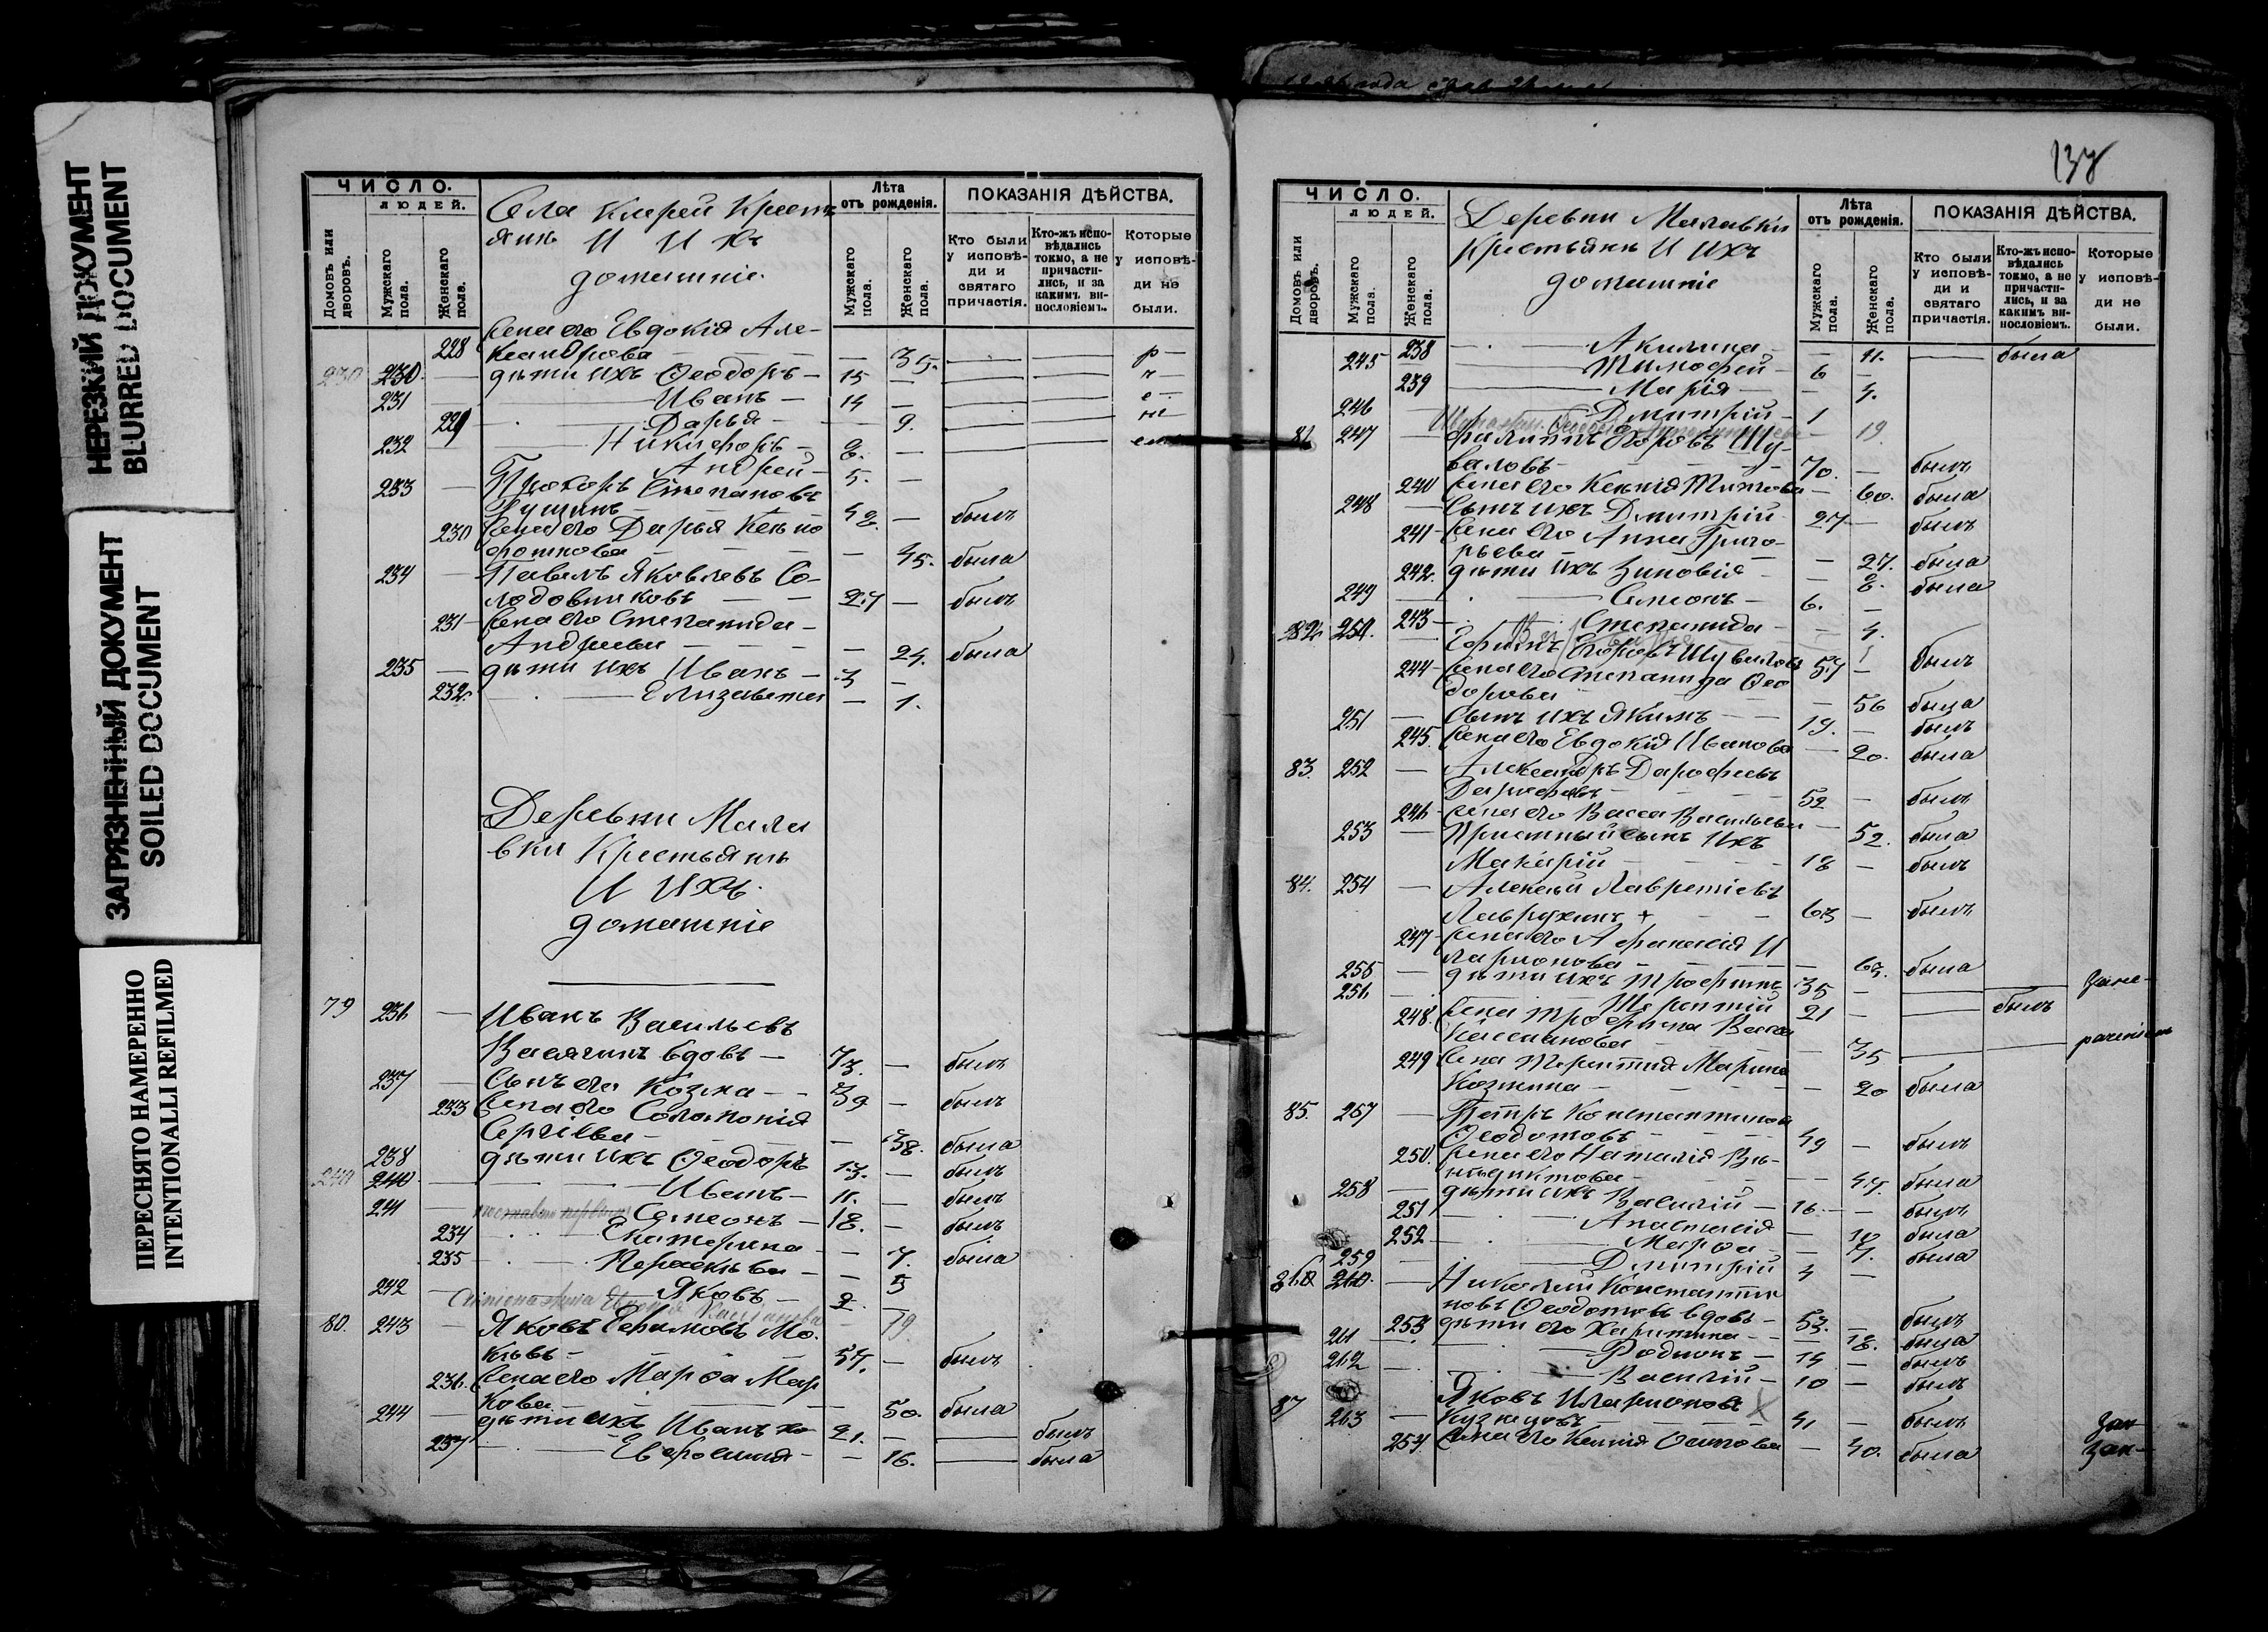 НЕРЕЗКИЙ ДОКУМЕНТ
BLURRED DOCUMENT
ЗАГРЯЗНЕННЫЙ ДОКУМЕНТ
SOILED DOCUMENT
ПЕРЕСНЯТО НАМЕРЕННО
INTENTIONALLI REFILMED
ЧИСЛО.
ЛЮДЕЙ.
Домовъ или дворовъ.
Мужскаго пола.
Женскаго пола.
Села Кирей Кресть
янъ И Ихъ
домашніе
Лѣта отъ рожденія.
Мужскаго пола.
Женскаго пола.
ПОКАЗАНІЯ ДѢЙСТВА.
Кто были у исповѣди и святаго причастія.
Кто-жъ исповѣдались токмо, а не причастились, и за какимъ винословіемъ.
Которые у исповѣди не были.
228 Жена его Евдокія Але-
ксандрова — 35.
230 230 дѣти ихъ Ѳеодоръ — 15
231 Иванъ — 14
229 Дарья — 9.
232 Никифоръ — 8.
Андрей — 5.
233 Прохоръ Степановъ
48 — былъ
230 Жена его Дарья
45. была
234 Павелъ Яковлевъ Со-
лодовниковъ — 27 — былъ
231 Жена его Степанида
Андреева — 24. была
235 дѣти ихъ Иванъ — 3
232. Елизавета — 1.
Деревни Мала
вки Крестьянъ
И Ихъ
домашніе
79 236 Иванъ Васильевъ
вдовъ — 73. — былъ
237 Сынъ его Козма — 39 — былъ
233 Жена его Соломонія
Сергіева — 38. была
238 дѣти ихъ Ѳеодоръ 13. — былъ
240 240 Иванъ — 11. — былъ
241 Симеонъ — 18. — былъ
234 Екатерина — 7. была
235 Параскева — 5
242 Яковъ — 2.
19.
80. 243 Яковъ Ефимовъ Мо-
кѣевъ — 57. — былъ
236. Жена его Марѳа Мар
кова — 50. была
244 дѣти ихъ Иванъ хо 21. — былъ
237 Евфросинія — 16. была
137
ЧИСЛО.
ЛЮДЕЙ.
Домовъ или дворовъ.
Мужскаго пола.
Женскаго пола.
Деревни Малавки
Крестьянъ И ихъ
домашніе
Лѣта отъ рожденія.
Мужскаго пола.
Женскаго пола.
ПОКАЗАНІЯ ДѢЙСТВА.
Кто были у исповѣди и святаго причастія.
Кто-жъ исповѣдались токмо, а не причастились, и за какимъ винословіемъ.
Которые у исповѣди не были.
238 Акилина — 11. была
245 Тимофей — 6
239 Марія — 4.
246 Дмитрій — 1
19.
81 247 Филиппъ Егоровъ Шу-
валовъ — 70. — былъ
240 Жена его Ксенія Титова — 60. была
248 Сынъ ихъ Дмитрій 27 — былъ
241 Жена его Анна Григо-
рьева — 27. была
242. дѣти ихъ Зиновія — 8. была
249 Симеонъ — 6.
243 Степанида — 4.
82 250. Ефимъ Егоровъ Шуваловъ 57 — былъ
244 Жена его Степанида Ѳео
дорова — 56 была
251 Сынъ ихъ Якимъ — 19. — былъ
245. Жена его Евдокія Иванова — 20. была
83. 252 Александръ Дарофеевъ
52 — былъ
246 Жена его Васса Васильева — 52. была
253 Пріемный сынъ Ихъ
Макарій — 18 — былъ
84. 254 Алексѣй Лаврентіевъ
Лаврухинъ + 63 — былъ
247 Жена его Афанасія И
ларионова — 63. была
255 дѣти ихъ Трофимъ 35
256. Терентій 21 — былъ
248. Жена Трофима Васса
35
249 Жена Терентія Марина
Козмина — 20 была
85. 257 Петръ Константинов
Ѳеодотовъ — 49 — былъ
250. Жена его Наталія Ве-
недиктова — 47. была
258 дѣти ихъ Василій — 16. — былъ
251 Анастасія — 10 была
252 Марѳа — 7. была
259 Дмитрій 4
260 260. Николай Константи
новъ Ѳеодотовъ вдовъ — 53. — былъ
253 дѣти его Харитина — 18. была
261 Родионъ — 14 — былъ
262 Василій — 10 — былъ
87 263 Яковъ Иларионовъ
Кузнецовъ 41 — былъ
254. Жена его Ксенія Осипова — 40. была